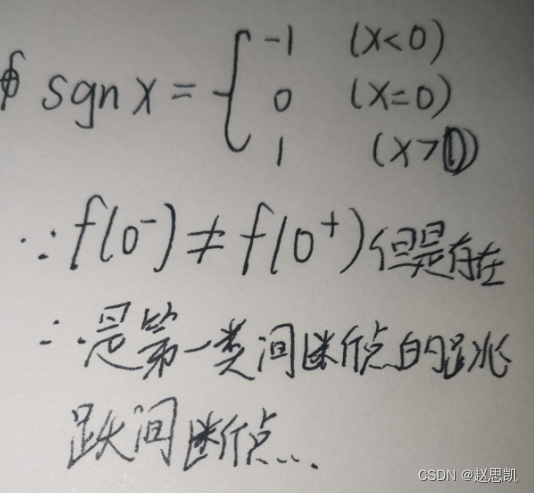 sgn x = { -1 (x<0)
0 (x=0)
1 (x>0)
∵ f(0⁻) ≠ f(0⁺) 但是存在
∴ 是第一类间断点的跳
跃间断点...
CSDN @赵思凯